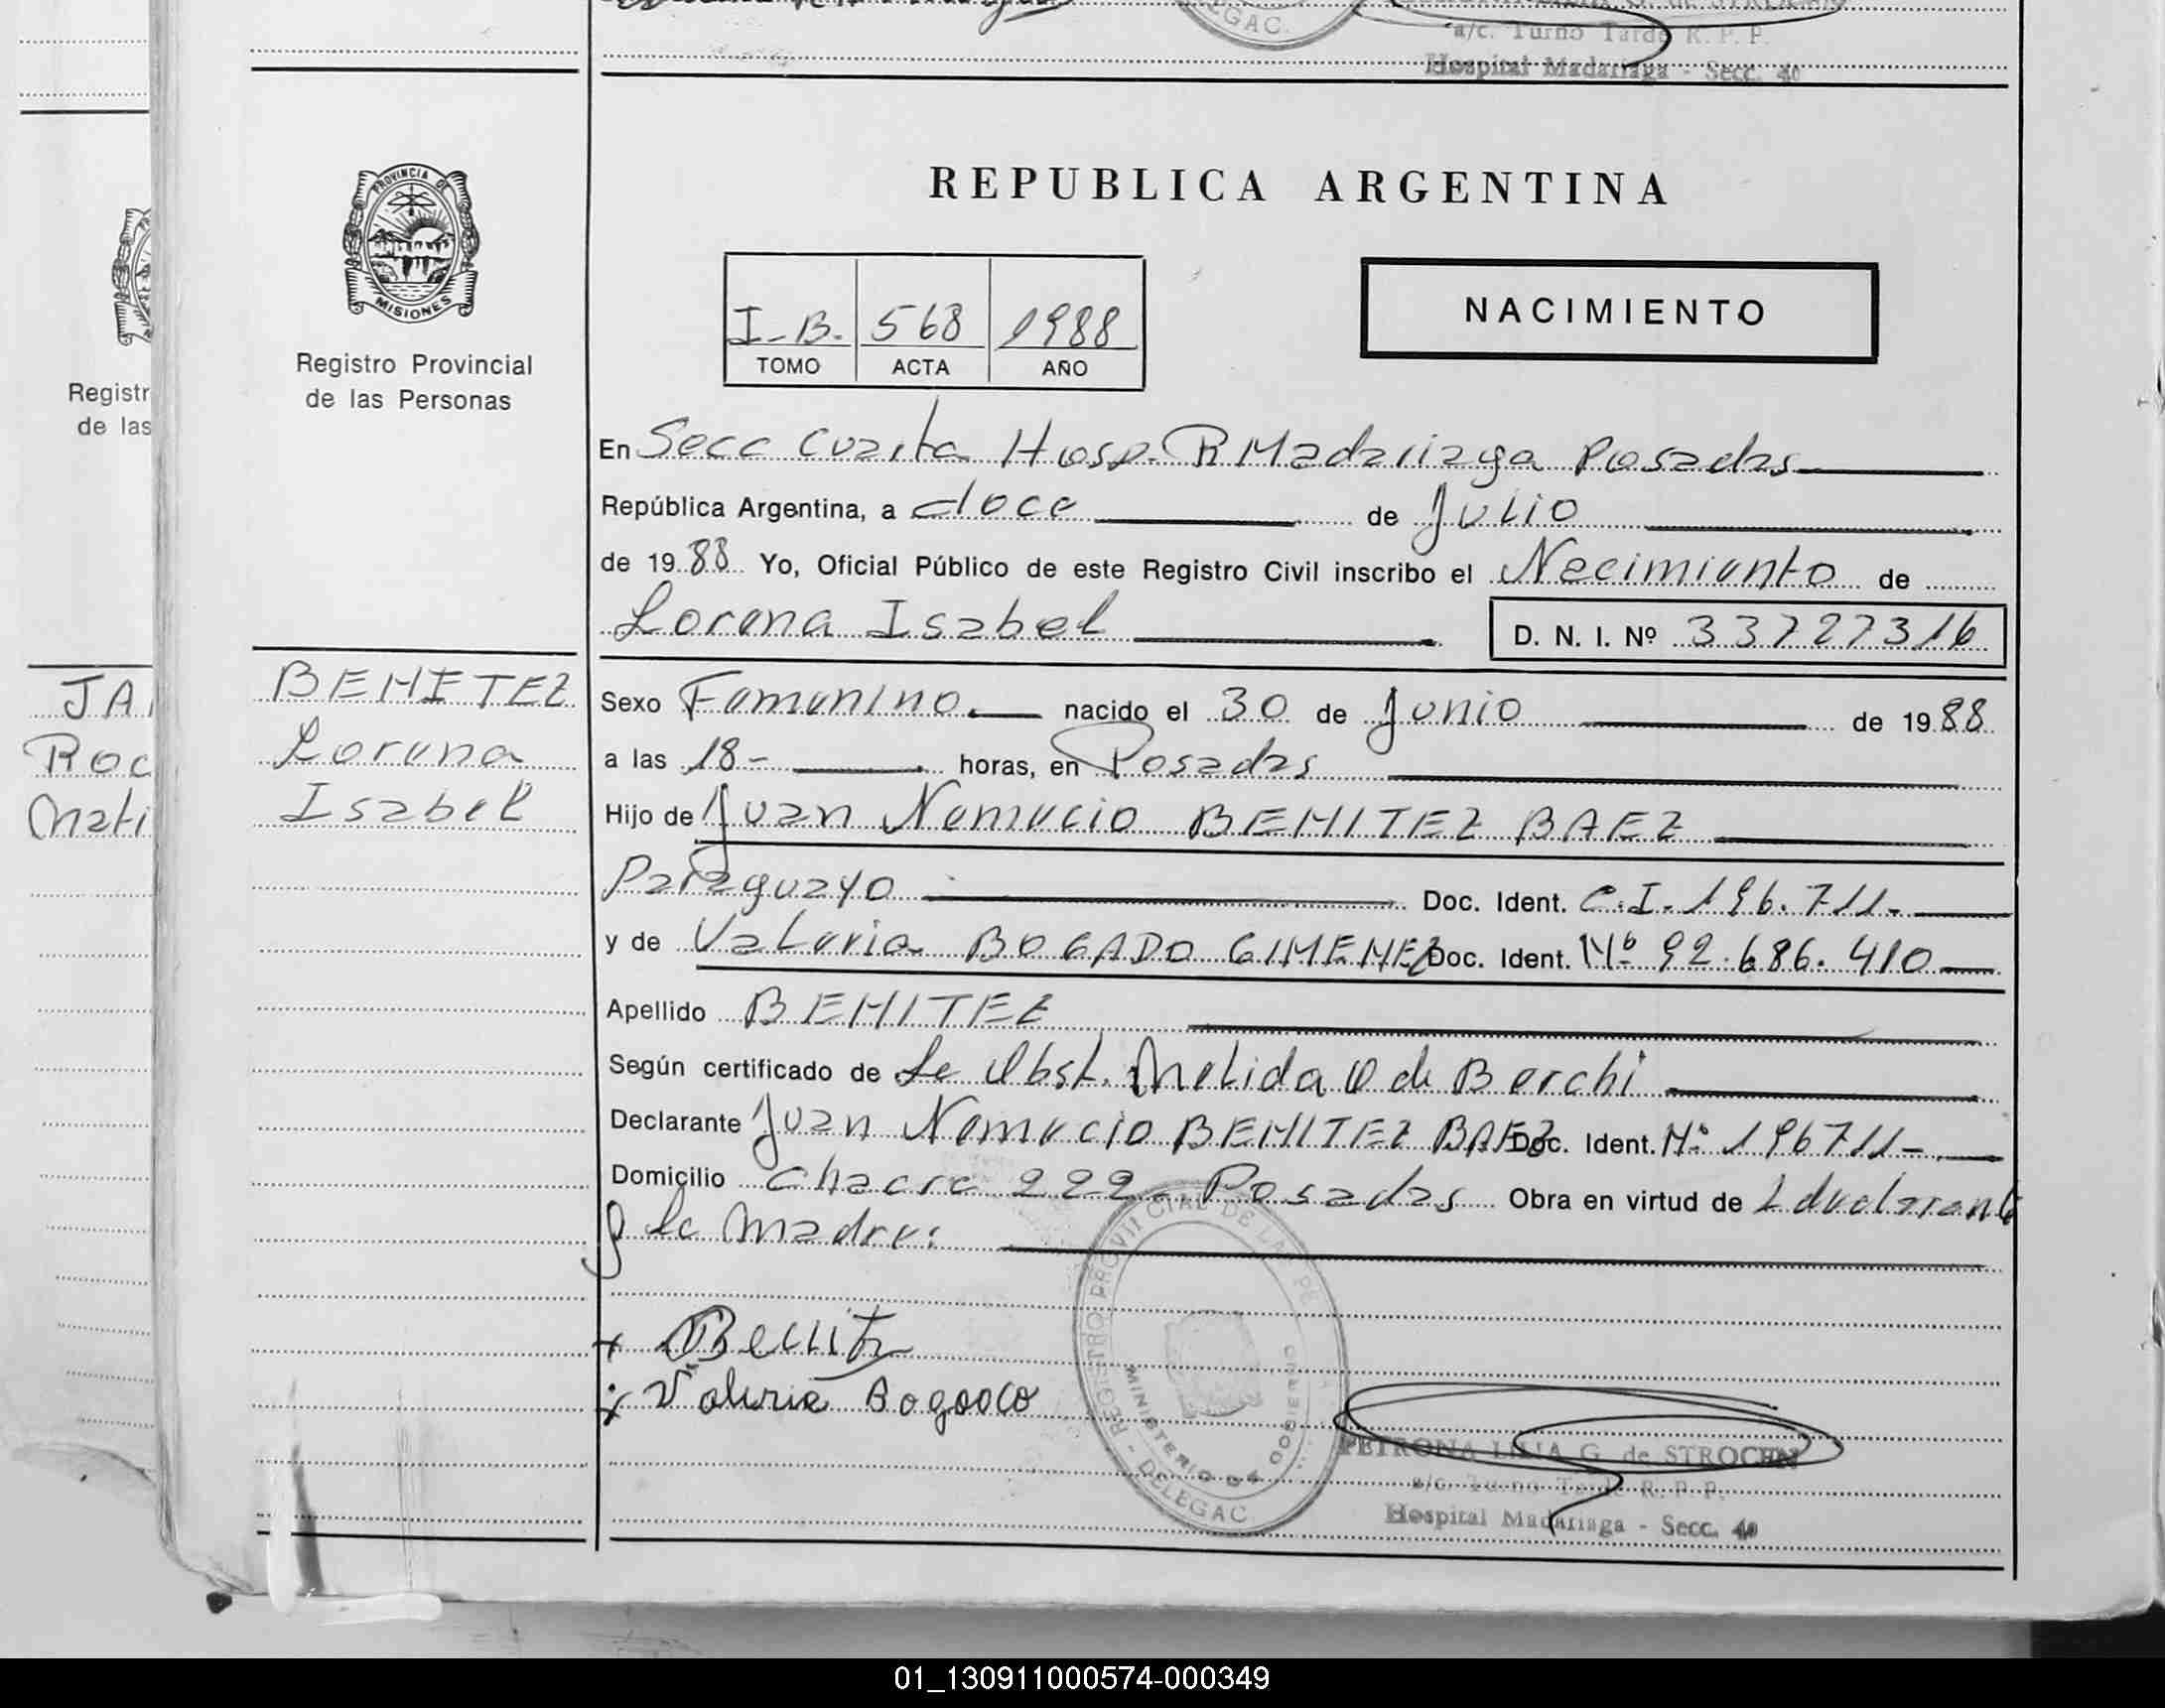 a/c. Turno Tarde R. P. P.
Hospital Madariaga - Secc. 4o
PROVINCIA DE
MISIONES
Registro Provincial
de las Personas
REPUBLICA ARGENTINA
I-B. 568 1988
TOMO ACTA AÑO
NACIMIENTO
En Secc Cuarta Hosp. R Madariaga Posadas
República Argentina, a doce de Julio
de 1988 Yo, Oficial Público de este Registro Civil inscribo el Nacimiento de
Lorena Isabel
D. N. I. Nº 33727316
BENITEZ
Lorena
Isabel
Sexo Femenino. nacido el 30 de Junio de 1988
a las 18- horas, en Posadas
Hijo de Juan Nemecio BENITEZ BAEZ
Paraguayo Doc. Ident. C.I. 196.711.
y de Valeria BOGADO GIMENEZ Doc. Ident. Nº 92.686.410
Apellido BENITEZ
Según certificado de La Obst. Melida O de Berchi
Declarante Juan Nemecio BENITEZ BAEZ Doc. Ident. Nº 196711-
Domicilio Chacra 222 - Posadas Obra en virtud de
la madre.
Benitz
Valeria Bogado
REGISTRO PROVINCIAL DE LA PE
MINISTERIO DE GOBIERNO
DELEGAC
PETRONA LILIA G. de STROCEN
a/c. Turno Tarde R. P. P.
Hospital Madariaga - Secc. 4o
Registr
de las
JA
Roc
Mati
01_130911000574-000349